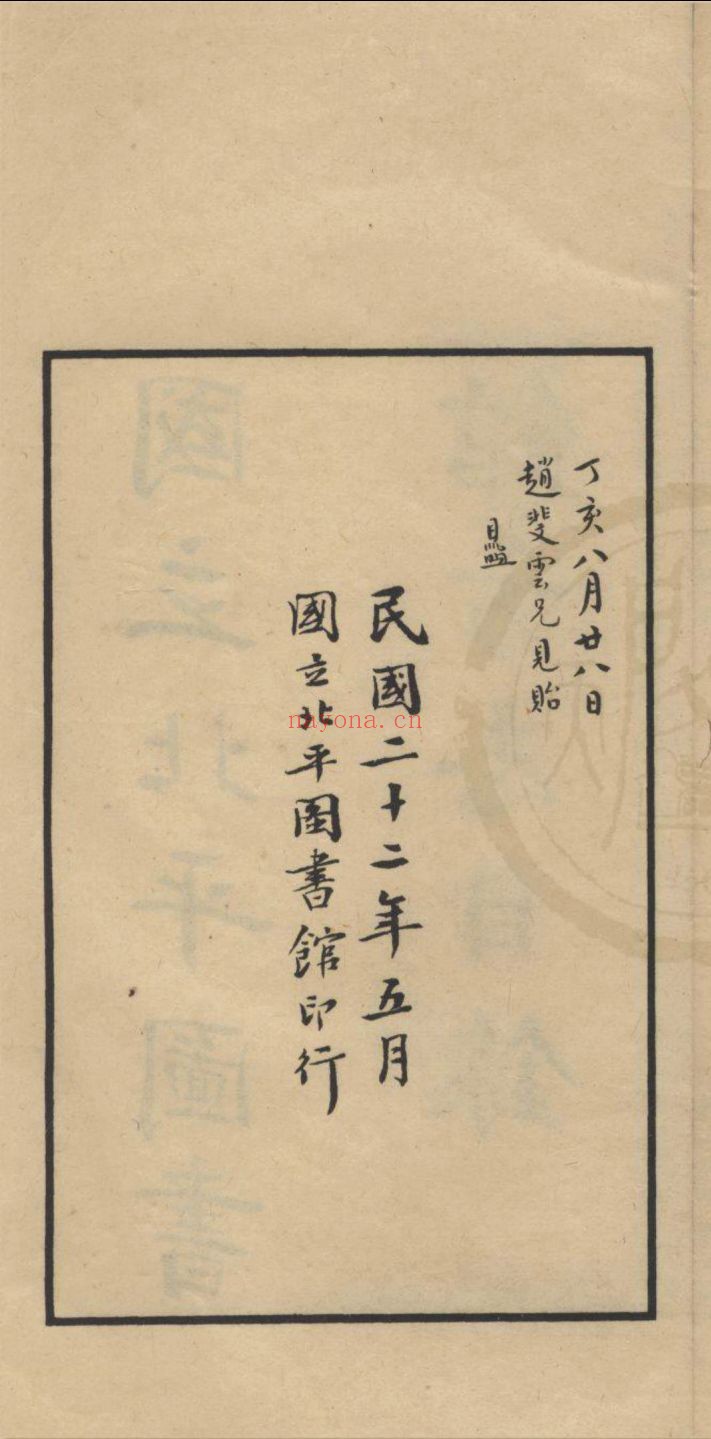 丁亥八月廿八日
趙斐雲兄見貽
民國二十二年五月
國立北平圖書館印行
nayona.cn